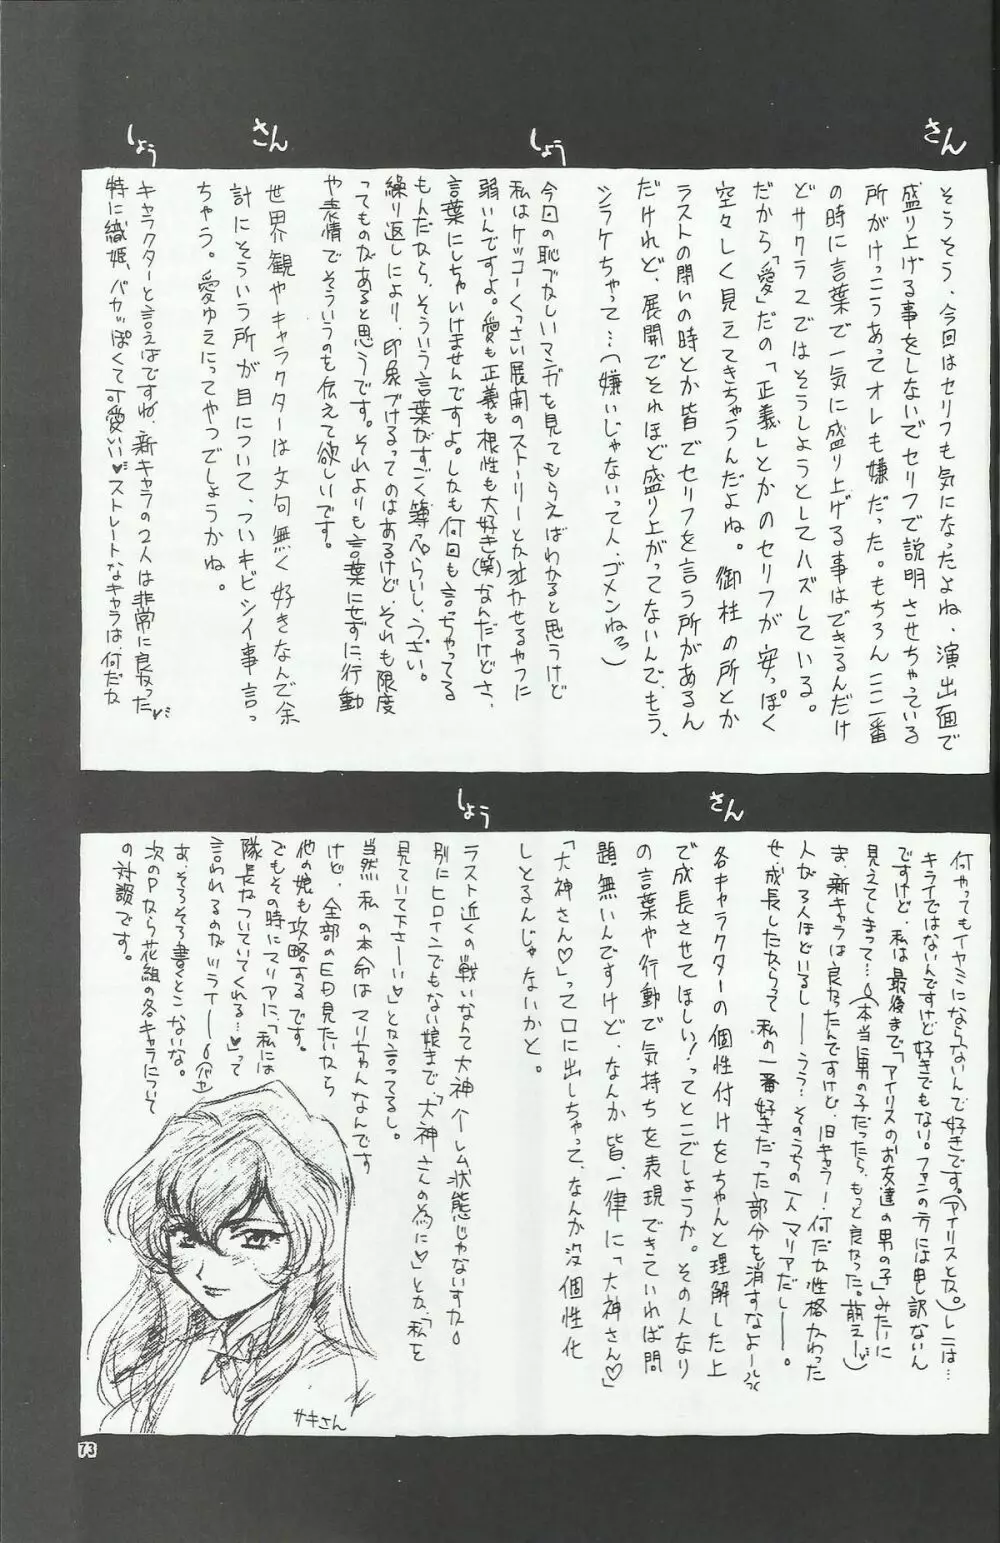 さん
そうそう、今回はセリフも気になったよね、演出面で
盛り上げる事をしないでセリフで説明させちゃっている
所がけっこうあってオレも嫌だった。もちろん、ここ一番
の時に言葉で一気に盛り上げる事はできるんだけ
どサクラ2ではそうしようとしてハズしている。
だから「愛」だの「正義」とかのセリフが安っぽく
空々しく見えてきちゃうんだよね。御柱の所とか
ラストの闘いの時とか皆でセリフを言う所があるん
だけれど、展開でそれほど盛り上がってないんで、もう、
シラケちゃって…(嫌いじゃないって人、ゴメンねっ)
しょう
今回の恥ずかしいマンガを見てもらえばわかると思うけど
私はケッコーくっさい展開のストーリーとか泣かせるやつに
弱いんですよ。愛も正義も根性も大好き(笑)なんだけどさ、
言葉にしちゃいけませんですよ。しかも何回も言っちゃってる
もんだから、そういう言葉がすごく薄っぺらいし、うざい。
繰り返しにより、印象づけるってのはあるけど、それも限度
ってものがあると思うです。それよりも言葉にせずに、行動
や表情でそういうのも伝えて欲しいです。
さん
世界観やキャラクターは文句無く好きなんで余
計にそういう所が目について、ついキビシイ事言っ
ちゃう。愛ゆえにってやつでしょうかね。
しょう
キャラクターと言えばですね、新キャラの2人は非常に良かった♥
特に織姫、バカっぽくて可愛い♥ストレートなキャラは、何だか
何やってもイヤミにならないんで好きです。(アイリスとか。)レニは…
キライではないんですけど好きでもない。ファンの方には申し訳ないん
ですけど、私は最後まで「アイリスのお友達の男の子」みたいに
見えてしまって…(本当に男の子だったら、もっと良かった。萌え〜♥)
ま、新キャラは良かったんですけど、旧キャラー、何だか性格かわった
人が3人ほどいるしーーうう…そのうちの一人マリアだしーー。
せ、成長したからって私の一番好きだった部分を消すなよーっっ
さん
各キャラクターの個性付けをちゃんと理解した上
で成長させてほしい!ってとこでしょうか。その人なり
の言葉や行動で気持ちを表現できていれば問
題無いんですけど、なんか皆、一律に「大神さん♡」
「大神さん♡」って口に出しちゃって、なんか没個性化
しとるんじゃないかと。
しょう
ラスト近くの戦いなんて大神ハーレム状態じゃないすか。
別にヒロインでもない娘まで、「大神さんの為に♡」とか、「私を
見ていて下さーい♥」とか言ってるし。
当然、私の本命はマリちゃんなんです
けど、全部のED見たいから
他の娘も攻略するです。
でもその時にマリアに、「私には
隊長がついていてくれる…♥」って
言われるのがツライーー
あ、そろそろ書くとこないな。
次のPから花組の各キャラについて
の対談です。
サキさん
73